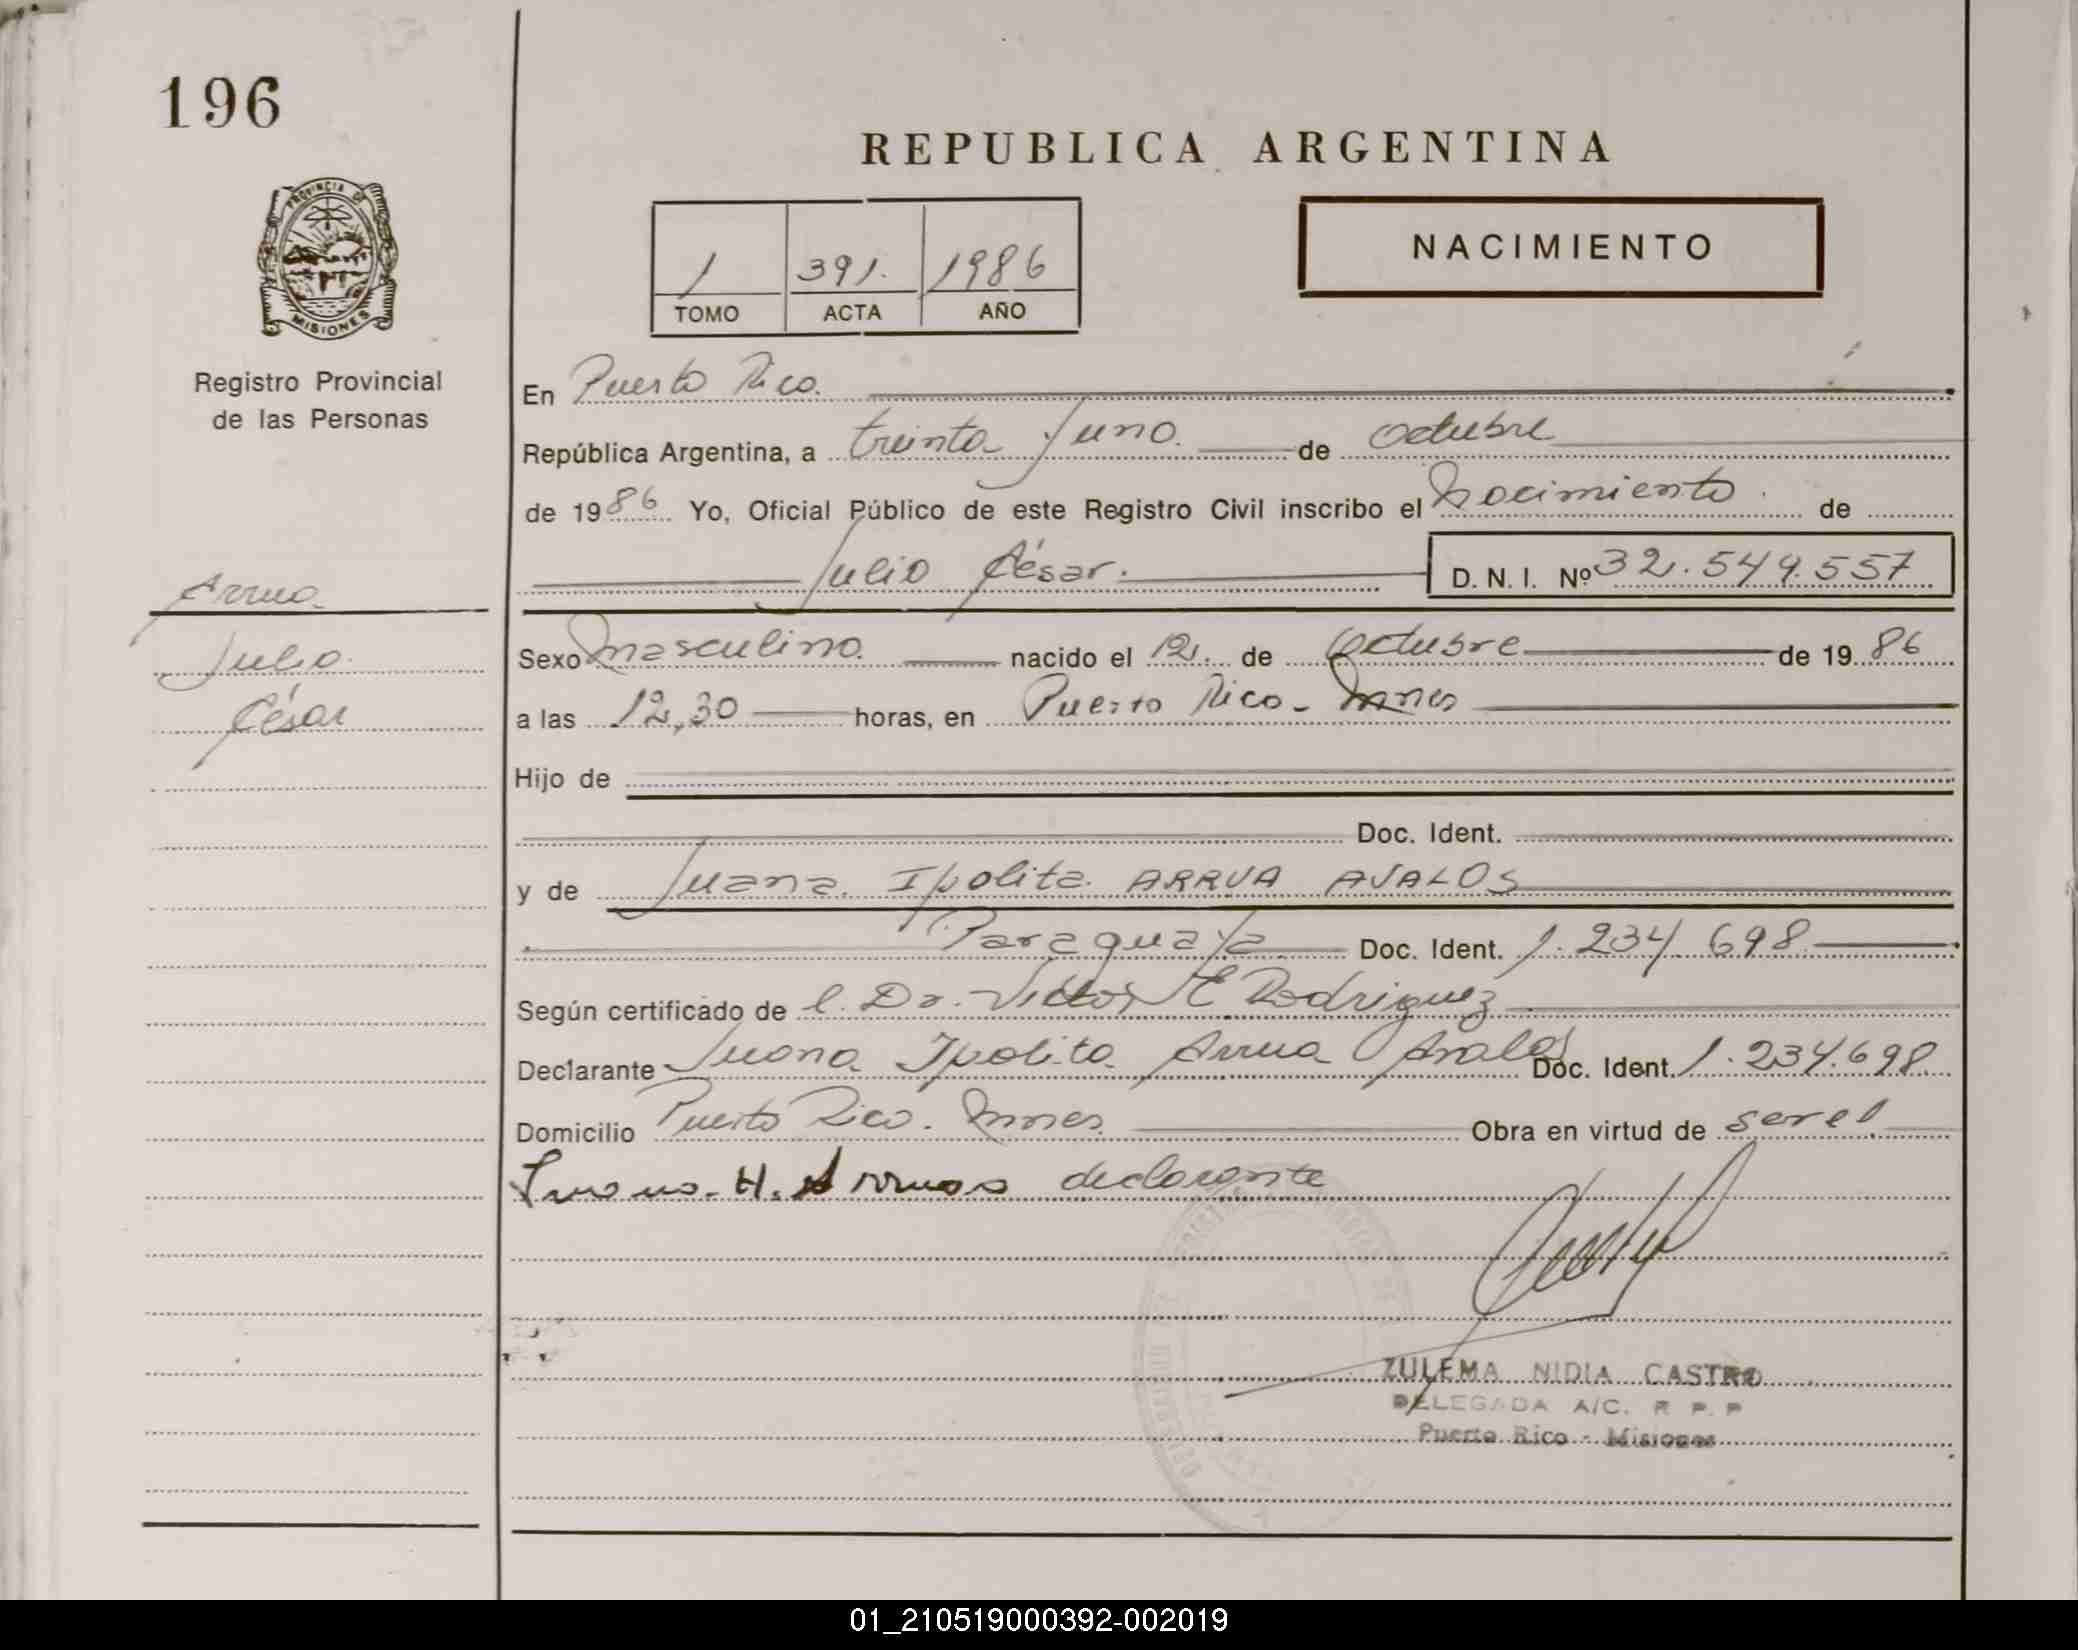 196
REPUBLICA ARGENTINA
PROVINCIA DE
MISIONES
1 391. 1986
TOMO ACTA AÑO
NACIMIENTO
Registro Provincial
de las Personas
En Puerto Rico.
República Argentina, a treinta y uno. de octubre
de 1986 Yo, Oficial Público de este Registro Civil inscribo el Nacimiento. de
Julio César. D. N. I. Nº 32.549.557
Arrua
Julio
César
Sexo masculino. nacido el 12. de Octubre de 1986
a las 12,30 horas, en Puerto Rico - Mnes
Hijo de
Doc. Ident.
y de Juana Ipolita ARRUA AVALOS
Paraguaya Doc. Ident. 1.234.698
Según certificado de l. Dr. Victor E Rodriguez
Declarante Juana Ipolita Arrua Avalos Doc. Ident. 1.234.698
Domicilio Puerto Rico. Mnes. Obra en virtud de ser el
H. declarante
ZULEMA NIDIA CASTRO
DELEGADA A/C. R P. P
Puerto Rico - Misiones
01_210519000392-002019